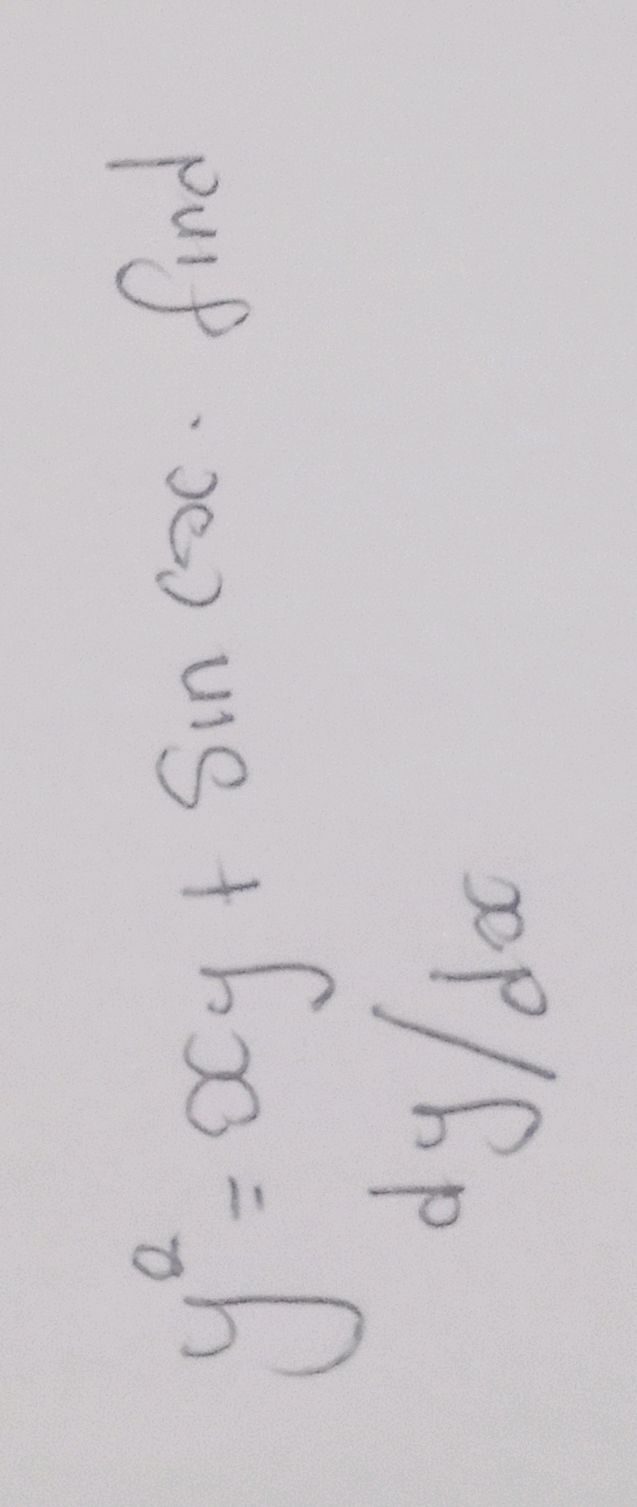 y² = xy + sin cosx. find
dy/dx